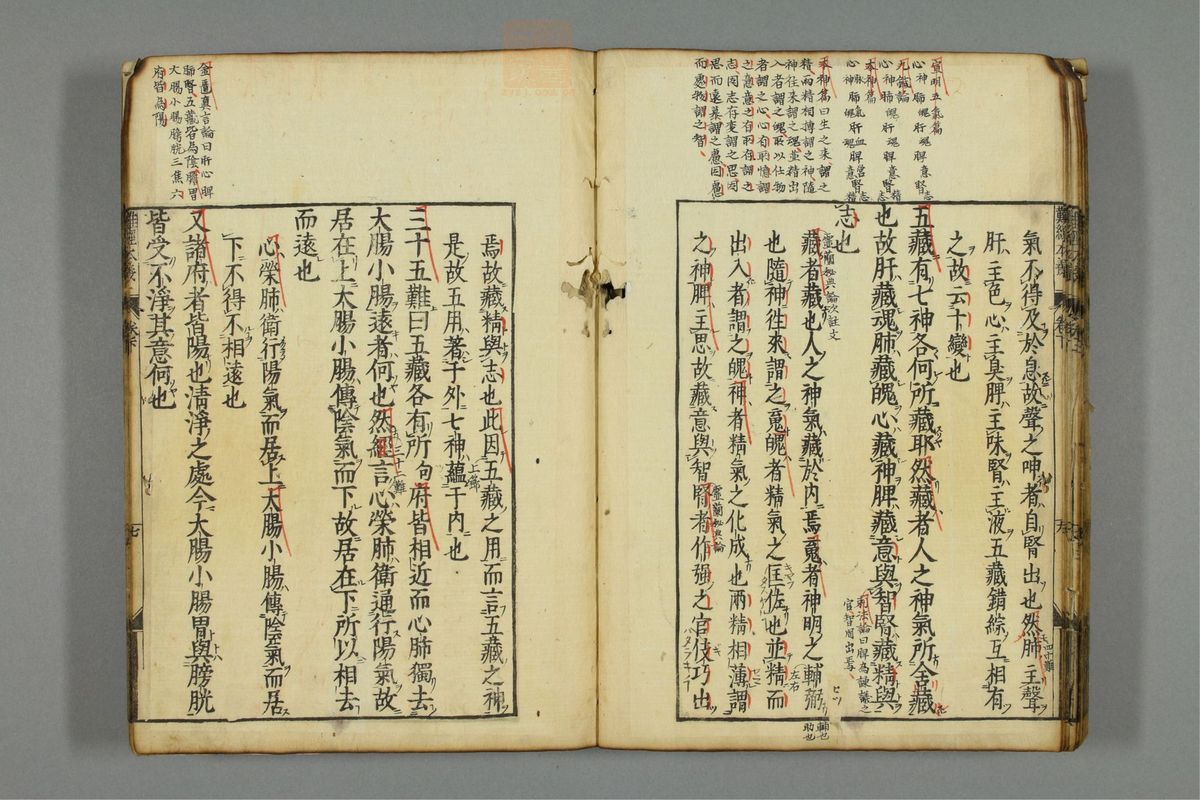 宣明五氣篇
心神 肺魄 肝魂 脾意 腎志
九鍼論
心神 肺魄 肝魂 脾意 腎精志
本神篇
心脉神 肺氣魄 肝血魂 脾營意 腎精志
本神篇曰生之来謂之
精兩精相搏謂之神隨
神往来謂之魂並精出
入者謂之魄所以任物
者謂之心心有所憶謂
之意意之所存謂之
志因志存変謂之思因
思而遠慕謂之慮因慮
而處物謂之智
氣不得及於息故聲之呻者自腎出也然肺主聲
肝主色心主臭脾主味腎主液五藏錯綜互相有
之故云十變也
五藏有七神各何所藏耶然藏者人之神氣所舍藏
也故肝藏魂肺藏魄心藏神脾藏意與智腎藏精與
志也
藏者藏也人之神氣藏於内焉䰟者神明之輔弼
也隨神徃來謂之䰟魄者精氣之匡佐也並精而
出入者謂之魄神者精氣之化成也兩精相薄謂
之神脾主思故藏意與智腎者作强之官伎巧出
焉故藏精與志也此因五藏之用而言五藏之神
是故五用著于外七神蘊于内也
三十五難曰五藏各有所句府皆相近而心肺獨去
大腸小腸遠者何也然經言心榮肺衛通行陽氣故
居在上大腸小腸傳陰氣而下故居在下所以相去
而遠也
心榮肺衛行陽氣而居上大腸小腸傳陰氣而居
下不得不相遠也
又諸府者皆陽也淸淨之處今大腸小腸胃與膀胱
皆受不淨其意何也
金匱真言論曰肝心脾
肺腎五藏皆為陰膽胃
大腸小腸膀胱三焦六
府皆為陽